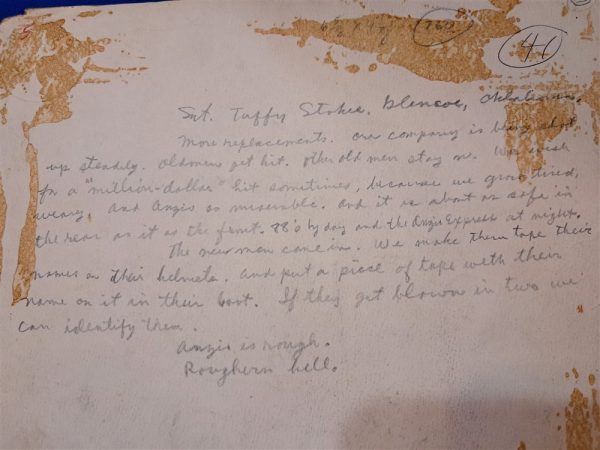 5
6 1/2 x 8 1/2
76%
41
Sgt. Tuffy Stokes. Glencoe, Oklahoma.
More replacements. Our company is being shot
up steadily. Oldmen get hit. Other old men stay on. We wish
for a "million-dollar" hit sometimes, because we grow tired,
weary. And Anzio is miserable. And it is about as safe in
the rear as it as the front. 88's by day and the Anzio Express at night.
The new men come in. We make them tape their
names on their helmets. And put a piece of tape with their
name on it in their boot. If they get blown in two we
can identify them.
Anzio is rough.
Roughern hell.